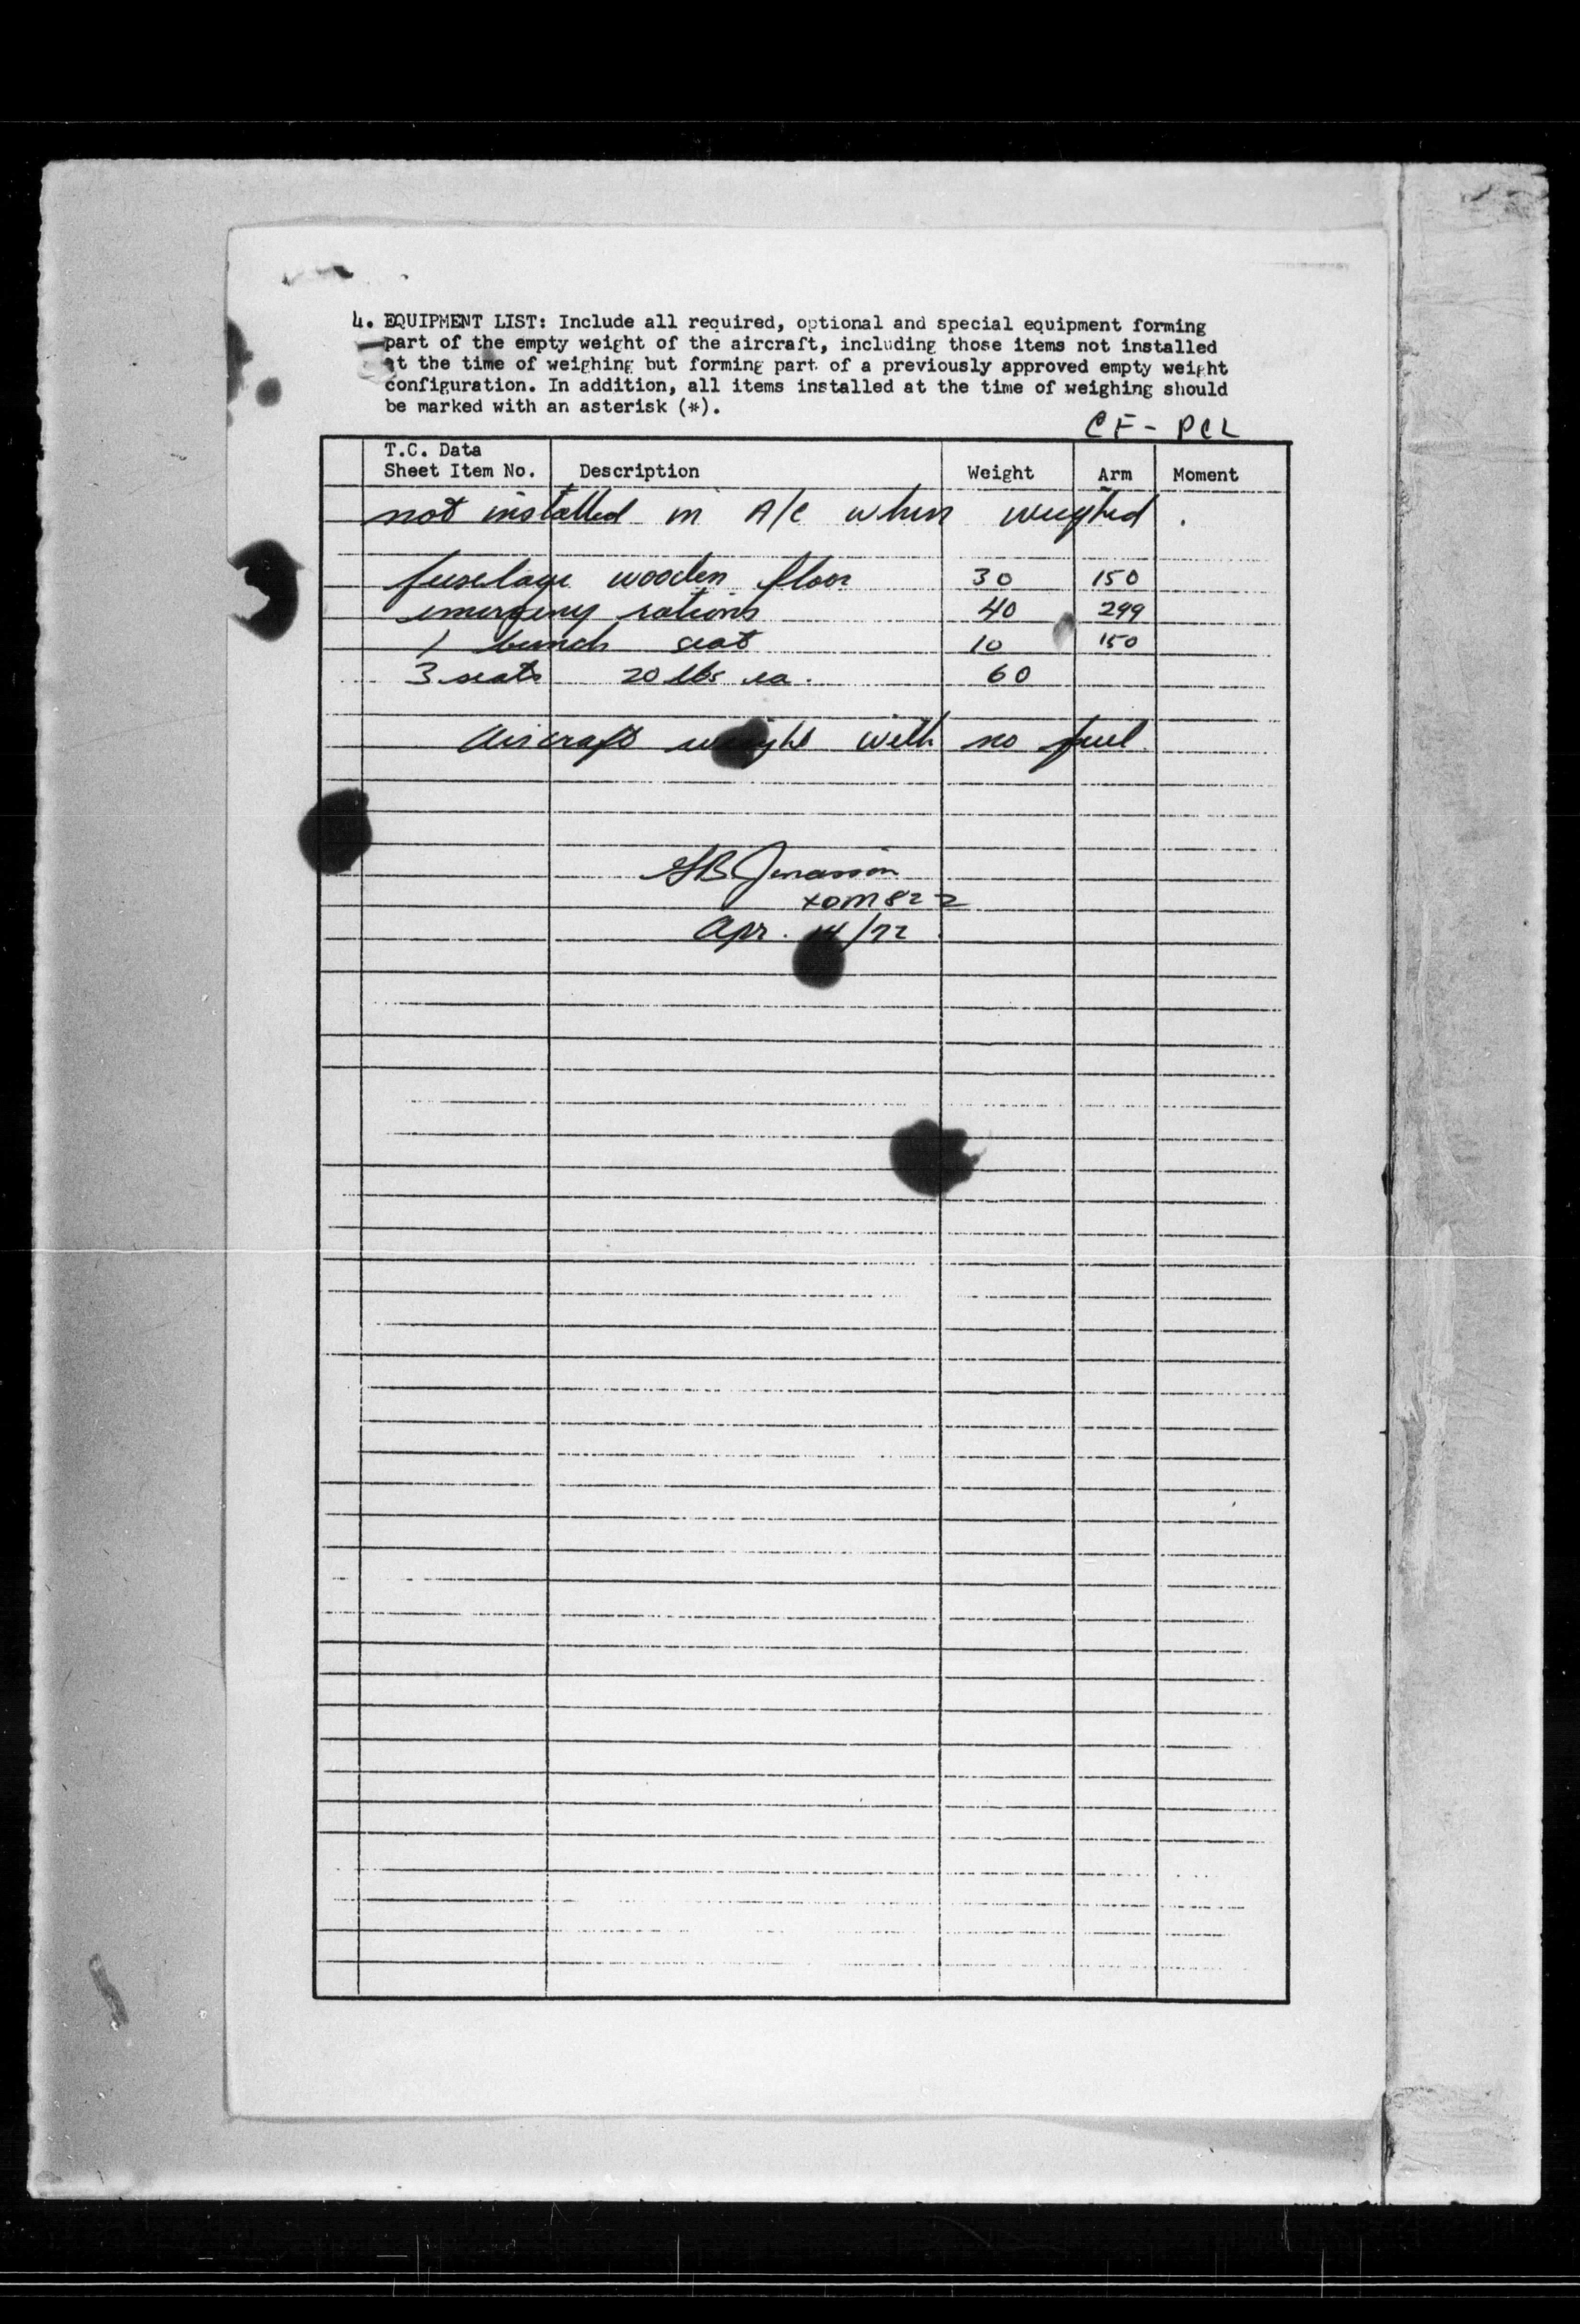 4. EQUIPMENT LIST: Include all required, optional and special equipment forming
part of the empty weight of the aircraft, including those items not installed
at the time of weighing but forming part of a previously approved empty weight
configuration. In addition, all items installed at the time of weighing should
be marked with an asterisk (*).
CF - PCL
T.C. Data
Sheet Item No. Description Weight Arm Moment
not installed in A/C when weighed .
fuselage wooden floor 30 150
emergency rations 40 299
1 bench seat 10 150
3 seats 20 lbs ea. 60
Aircraft weight with no fuel.
XDM 822
Apr. 14/72